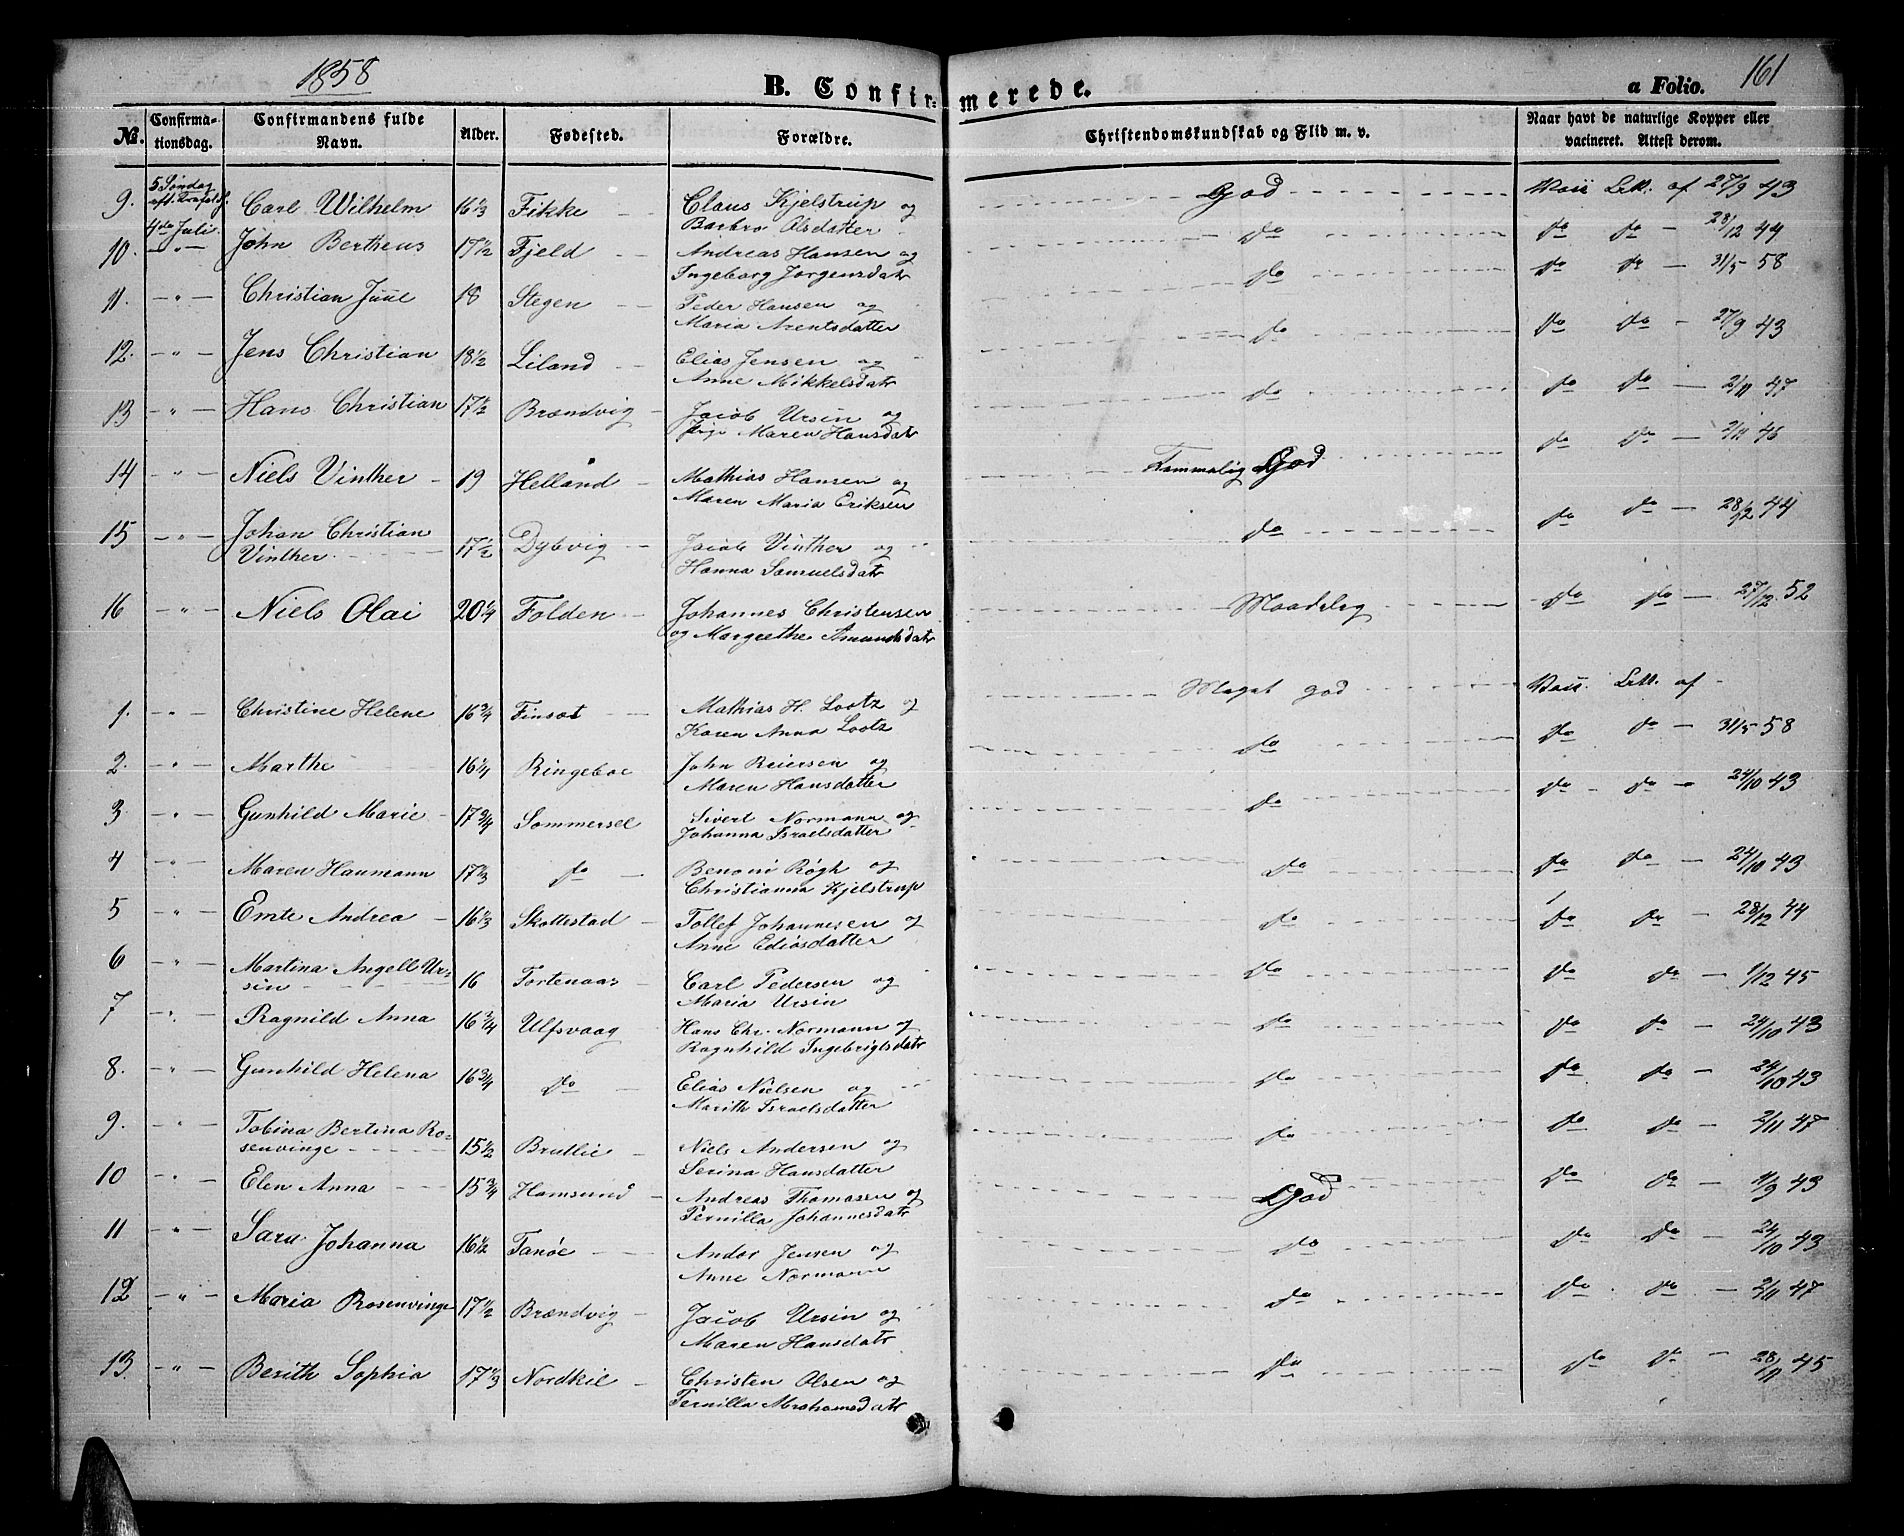 1858
161
B. Confirmerede.
a Folio.
No. Confirmationsdag. Confirmandens fulde Navn. Alder. Fødested. Forældre. Christendomskundskab og Flid m. v. Naar havt de naturlige Kopper eller vacineret. Attest derom.
9. 5 Søndag eft. Trefold. 4de Juli. Carl Wilhelm 16 1/3 Fikke Claus Kjelstrup og Barbro Olsdatter God Att. af 27/9 43
10. " John Bertheus 17 1/2 Fjeld Andreas Hansen og Ingeborg Jørgensdatr do do do 28/12 44
11. " Christian Juul 18 Stegen Peder Hansen og Maria Arentsdatter do do do 31/5 58
12. " Jens Christian 18 1/2 Liland Elias Jensen og Anne Mikkelsdatr do do do 27/9 43
13 " Hans Christian 17 1/2 Brændvig Jacob Ursin og Maren Hansdatr do do do 2/11 47
14 " Niels Vinther 19 Helland Mathias Hansen og Maren Maria Eriksen Temmelig God do do 46
15 " Johan Christian Vinther 17 1/2 Dybvig Jacob Vinther og Hanna Samuelsdatr do do do 28/12 44
16 " Niels Olai 20 1/4 Folden Johannes Christensen og Margrethe Amundsdatr Maadelig do do 27/12 52
1. " Christine Helene 16 3/4 Finsæt Mathias H. Lootz og Karen Anna Lootz Meget god Att. af
2. " Marthe 16 1/4 Ringeboe John Reiersen og Maren Hansdatter do do do 31/5 58
3 " Gunhild Marie 17 3/4 Sommersel Sivert Normann og Johanna Israelsdatter do do do 24/10 43
4 " Maren Haumann 17 1/3 do Benoni Røgh og Christianna Kjelstrup do do do 24/10 43
5 " Emte Andrea 16 1/3 Skottestad Tollef Johannesen og Anne Ediasdatter do do do 28/12 44
6 " Martina Angell Ursin 16 Tortenaas Carl Pedersen og Maria Ursin do do do 1/12 45
7 " Ragnild Anna 16 3/4 Ulfsvaag Hans Chr. Normann og Ragnhild Ingebrigtsdatr do do do 24/10 43
8. " Gunhild Helena 16 3/4 do Elias Nielsen og Marith Israelsdatter do do do 24/10 43
9. " Tobina Bertina Rosenvinge 15 1/2 Brutlie Niels Andersen og Serina Hansdatter do do do 2/11 47
10 " Elen Anna 15 3/4 Hamsund Andreas Thomassen og Pernilla Johannesdatr God do do 11/9 43
11 " Sara Johanna 16 1/2 Tanøe Andor Jensen og Anne Normann do do do 24/10 43
12 " Maria Rosenvinge 17 1/2 Brændvig Jacob Ursin og Maren Hansdatr do do do 2/11 47
13 " Berith Sophia 17 1/3 Nordkil Christen Olsen og Pernilla Abrahamsdatr do do do 28/11 45